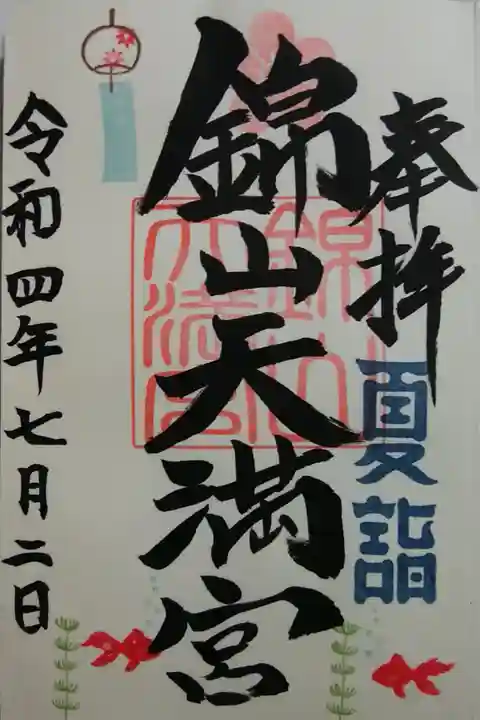 奉拝
夏詣
錦山天満宮
錦山天満宮
令和四年七月二日